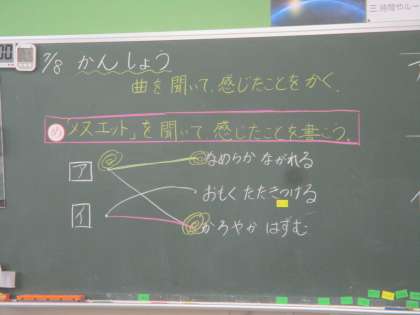 三 時間やルー
00
7/8 かんしょう
曲を聞いて、感じたことをかく.
め 「メヌエット」を聞いて感じたことを書こう。
ア
なめらか ながれる
おもく たたきつける
イ
かろやか はずむ